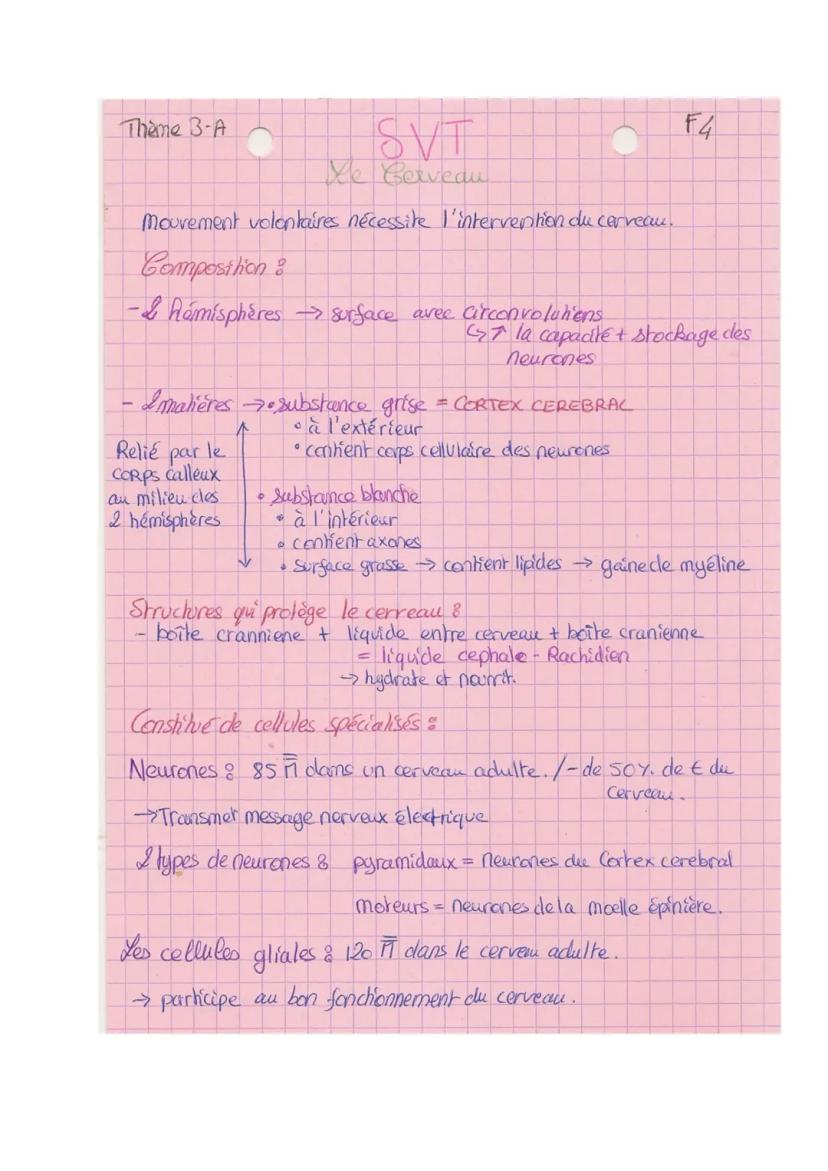 Thème 3-A
SVT
F4
Le Cerveau
Mouvement volontaires nécessite l'intervention du cerveau.
Composition :
- 2 hémisphères → surface avec circonvolutions
↳ ↑ la capacité + stockage des
neurones
- 2 matières → • substance grise = CORTEX CEREBRAL
• à l'extérieur
• contient corps cellulaire des neurones
Relié par le
corps calleux
au milieu des
2 hémisphères
• substance blanche
• à l'intérieur
• contient axones
• surface grasse → contient lipides → gaine de myéline
Structures qui protège le cerveau :
- boîte cranniene + liquide entre cerveau + boîte cranienne
= liquide cephalo-Rachidien
→ hydrate et nourrit.
Constitué de cellules spécialisés :
Neurones : 85 M̿ dans un cerveau adulte. /- de 50% de ¢ du
cerveau.
→ Transmet message nerveux électrique
2 types de neurones : pyramidaux = neurones du Cortex cerebral
moteurs = neurones de la moelle épinière.
Les cellules gliales : 120 M̿ dans le cerveau adulte.
→ participe au bon fonctionnement du cerveau.